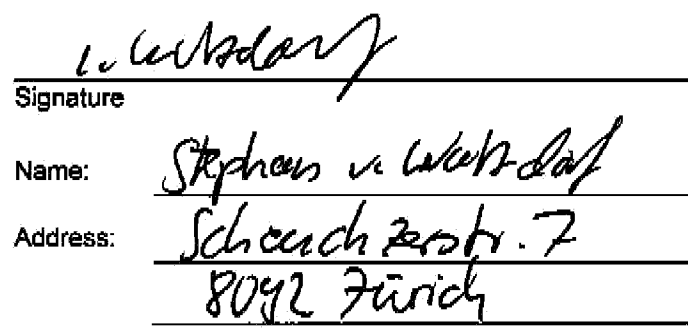 v. Watzdorf
Signature
Name: Stephan v. Watzdorf
Address: Scheuchzerstr. 7
8092 Zürich